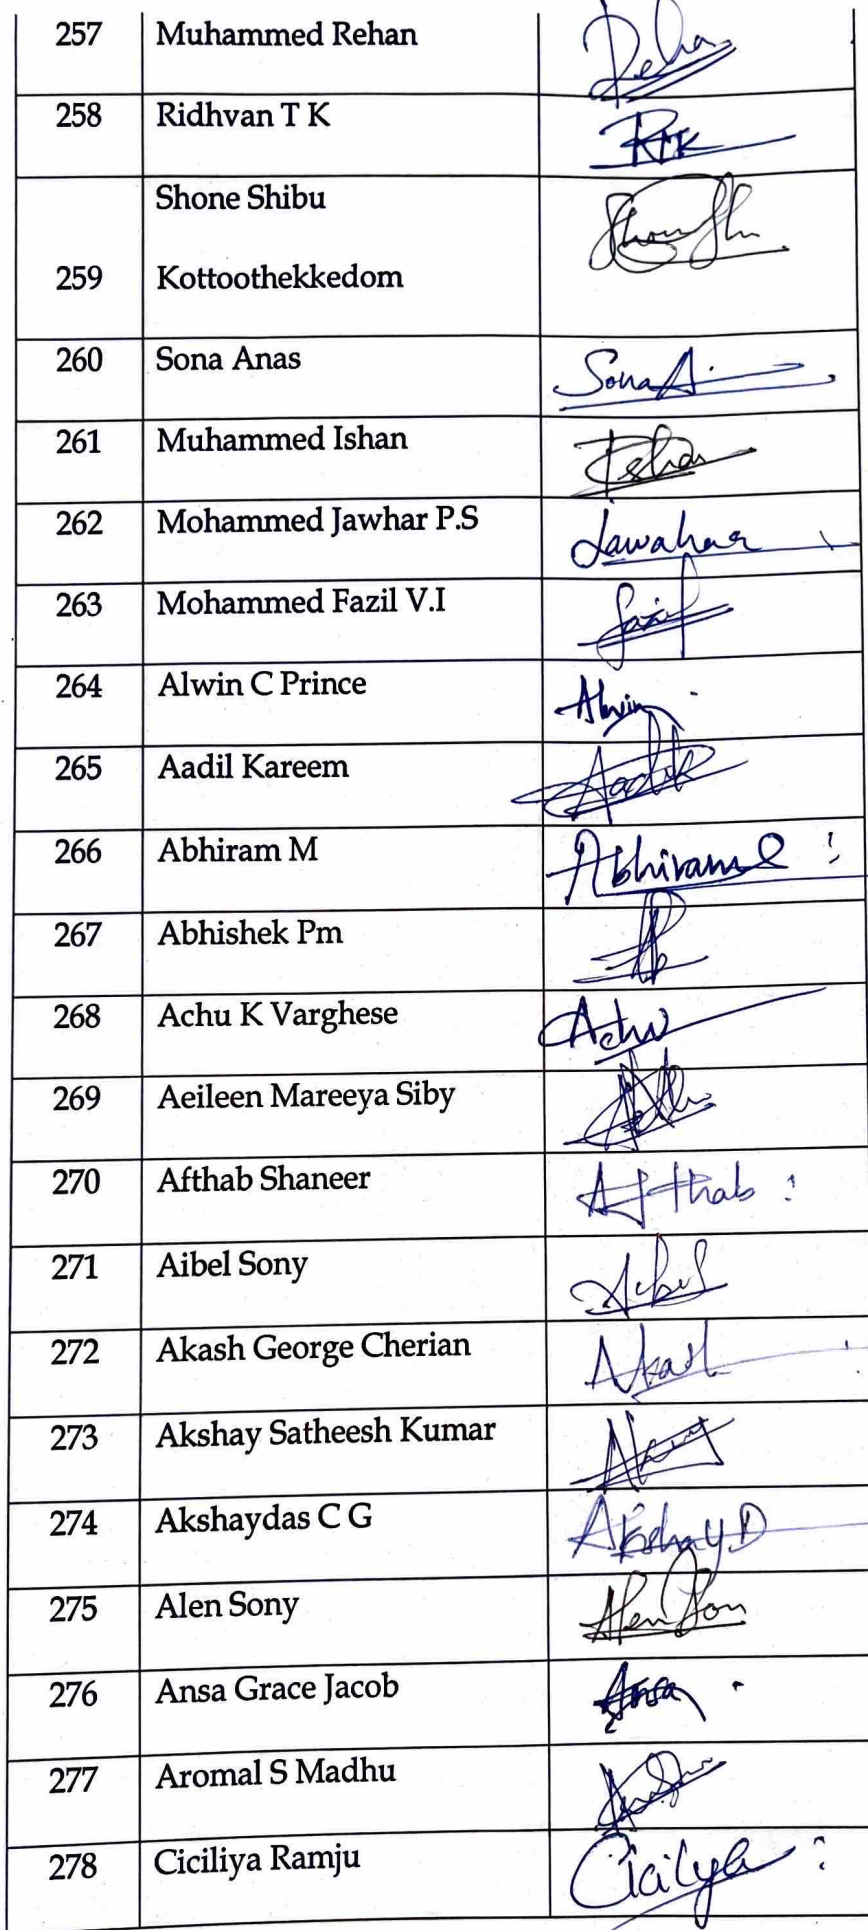 257 Muhammed Rehan Reha
258 Ridhvan T K RTK
Shone Shibu
259 Kottoothekkedom
260 Sona Anas Sona A.
261 Muhammed Ishan Ishan
262 Mohammed Jawhar P.S Jawahar
263 Mohammed Fazil V.I Fazil
264 Alwin C Prince Alwin
265 Aadil Kareem Aadil
266 Abhiram M Abhiram
267 Abhishek Pm
268 Achu K Varghese Achu
269 Aeileen Mareeya Siby
270 Afthab Shaneer Afthab
271 Aibel Sony Aibel
272 Akash George Cherian Akash
273 Akshay Satheesh Kumar
274 Akshaydas C G Akshay D
275 Alen Sony Alen Son
276 Ansa Grace Jacob Ansa
277 Aromal S Madhu
278 Ciciliya Ramju Cicilya